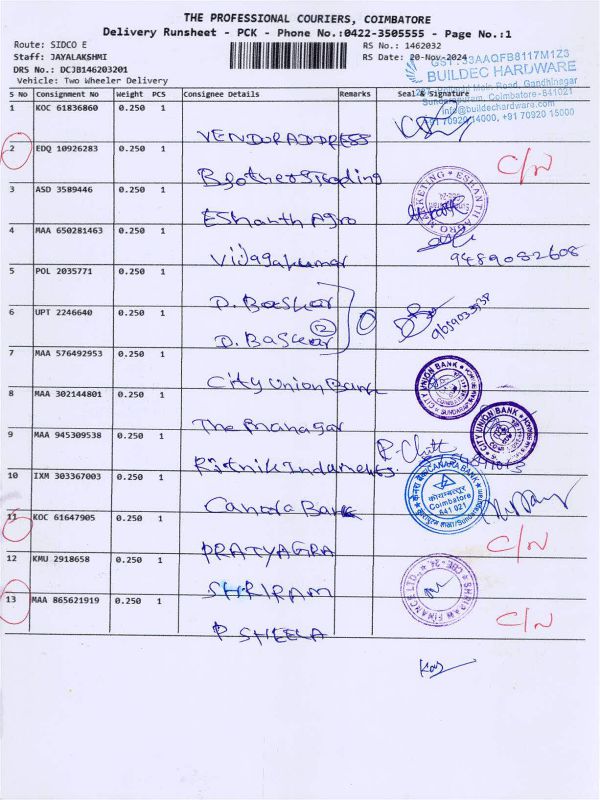 THE PROFESSIONAL COURIERS, COIMBATORE
Delivery Runsheet - PCK - Phone No.:0422-3505555 - Page No.:1
Route: SIDCO E
RS No.: 1462032
Staff: JAYALAKSHMI
RS Date: 20-Nov-2024
DRS No.: DCJB146203201
Vehicle: Two Wheeler Delivery
GST: 33AAQFB8117M1Z3
BUILDEC HARDWARE
Main Road, Gandhinagar
Sundarapuram, Coimbatore - 641021
info@buildechardware.com
+91 70920 14000, +91 70920 15000
S No Consignment No Weight PCS Consignee Details Remarks Seal & Signature
1 KOC 61836860 0.250 1 VENDOR ADDRESS
2 EDQ 10926283 0.250 1 Brothers Trading C/N
3 ASD 3589446 0.250 1 Eshanth Agro
ESHANTH AGRO MARKETING
4 MAA 650281463 0.250 1 Vijayakumar 9489082608
5 POL 2035771 0.250 1 D. Baskar
6 UPT 2246640 0.250 1 D. Baskar
2
7 MAA 576492953 0.250 1 City Union Bank
CITY UNION BANK
8 MAA 302144801 0.250 1 The Manager
CITY UNION BANK
9 MAA 945309538 0.250 1
10 IXM 303367003 0.250 1 Canara Bank
केनरा बैंक CANARA BANK
कोयम्बत्तूर
Coimbatore
641 021
11 KOC 61647905 0.250 1 PRATYAGRA C/N
12 KMU 2918658 0.250 1 SHRIRAM
SHRIRAM FINANCE LTD. CBE-24
13 MAA 865621919 0.250 1 P SHEELA C/N